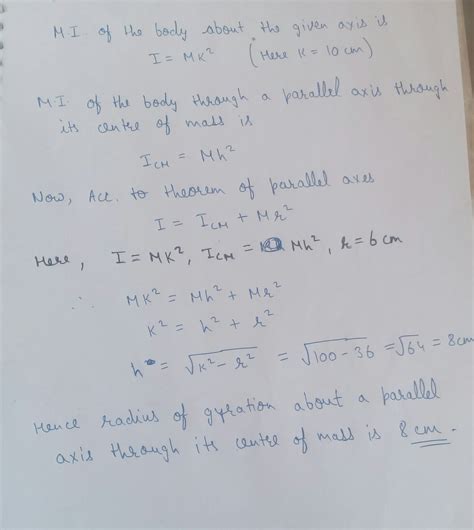 M.I. of the body about the given axis is
I = MK² (Here K = 10 cm)
M.I. of the body through a parallel axis through
its centre of mass is
I_CM = Mh²
Now, Acc. to theorem of parallel axes
I = I_CM + Mr²
Here, I = MK², I_CM = Mh², r = 6 cm
∴ MK² = Mh² + Mr²
K² = h² + r²
h = √K² - r² = √100 - 36 = √64 = 8cm
Hence radius of gyration about a parallel
axis through its centre of mass is 8 cm.